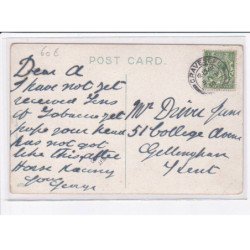 606
POST CARD.
GRAVESEND
Dear A
I have not yet
received Pens
or Tobacco yet
hope your head
has not got
like this after
Horse Racing
Your
George
Mr Driver Junr
51 College Avenue
Gillingham
Kent